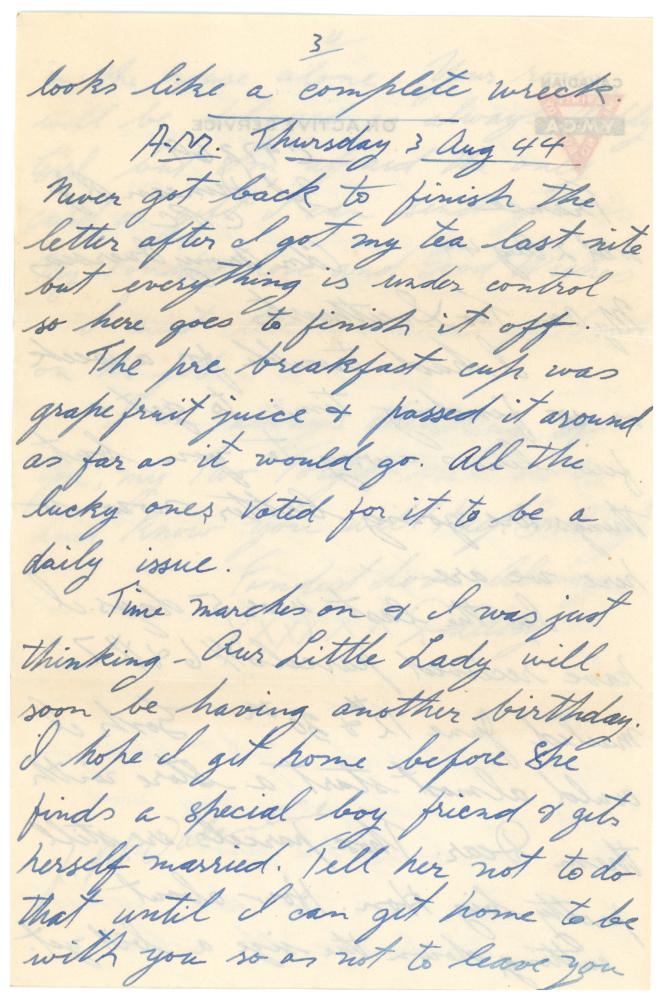 3
looks like a complete wreck.
A.M. Thursday 3 Aug 44
Never got back to finish the
letter after I got my tea last nite
but everything is under control
so here goes to finish it off.
The pre breakfast cup was
grapefruit juice & passed it around
as far as it would go. All the
lucky ones voted for it to be a
daily issue.
Time marches on & I was just
thinking - Our Little Lady will
soon be having another birthday.
I hope I get home before she
finds a special boy friend & gets
herself married. Tell her not to do
that until I can get home to be
with you so as not to leave you
CANADIAN
Y.M.C.A.
ON ACTIVE SERVICE